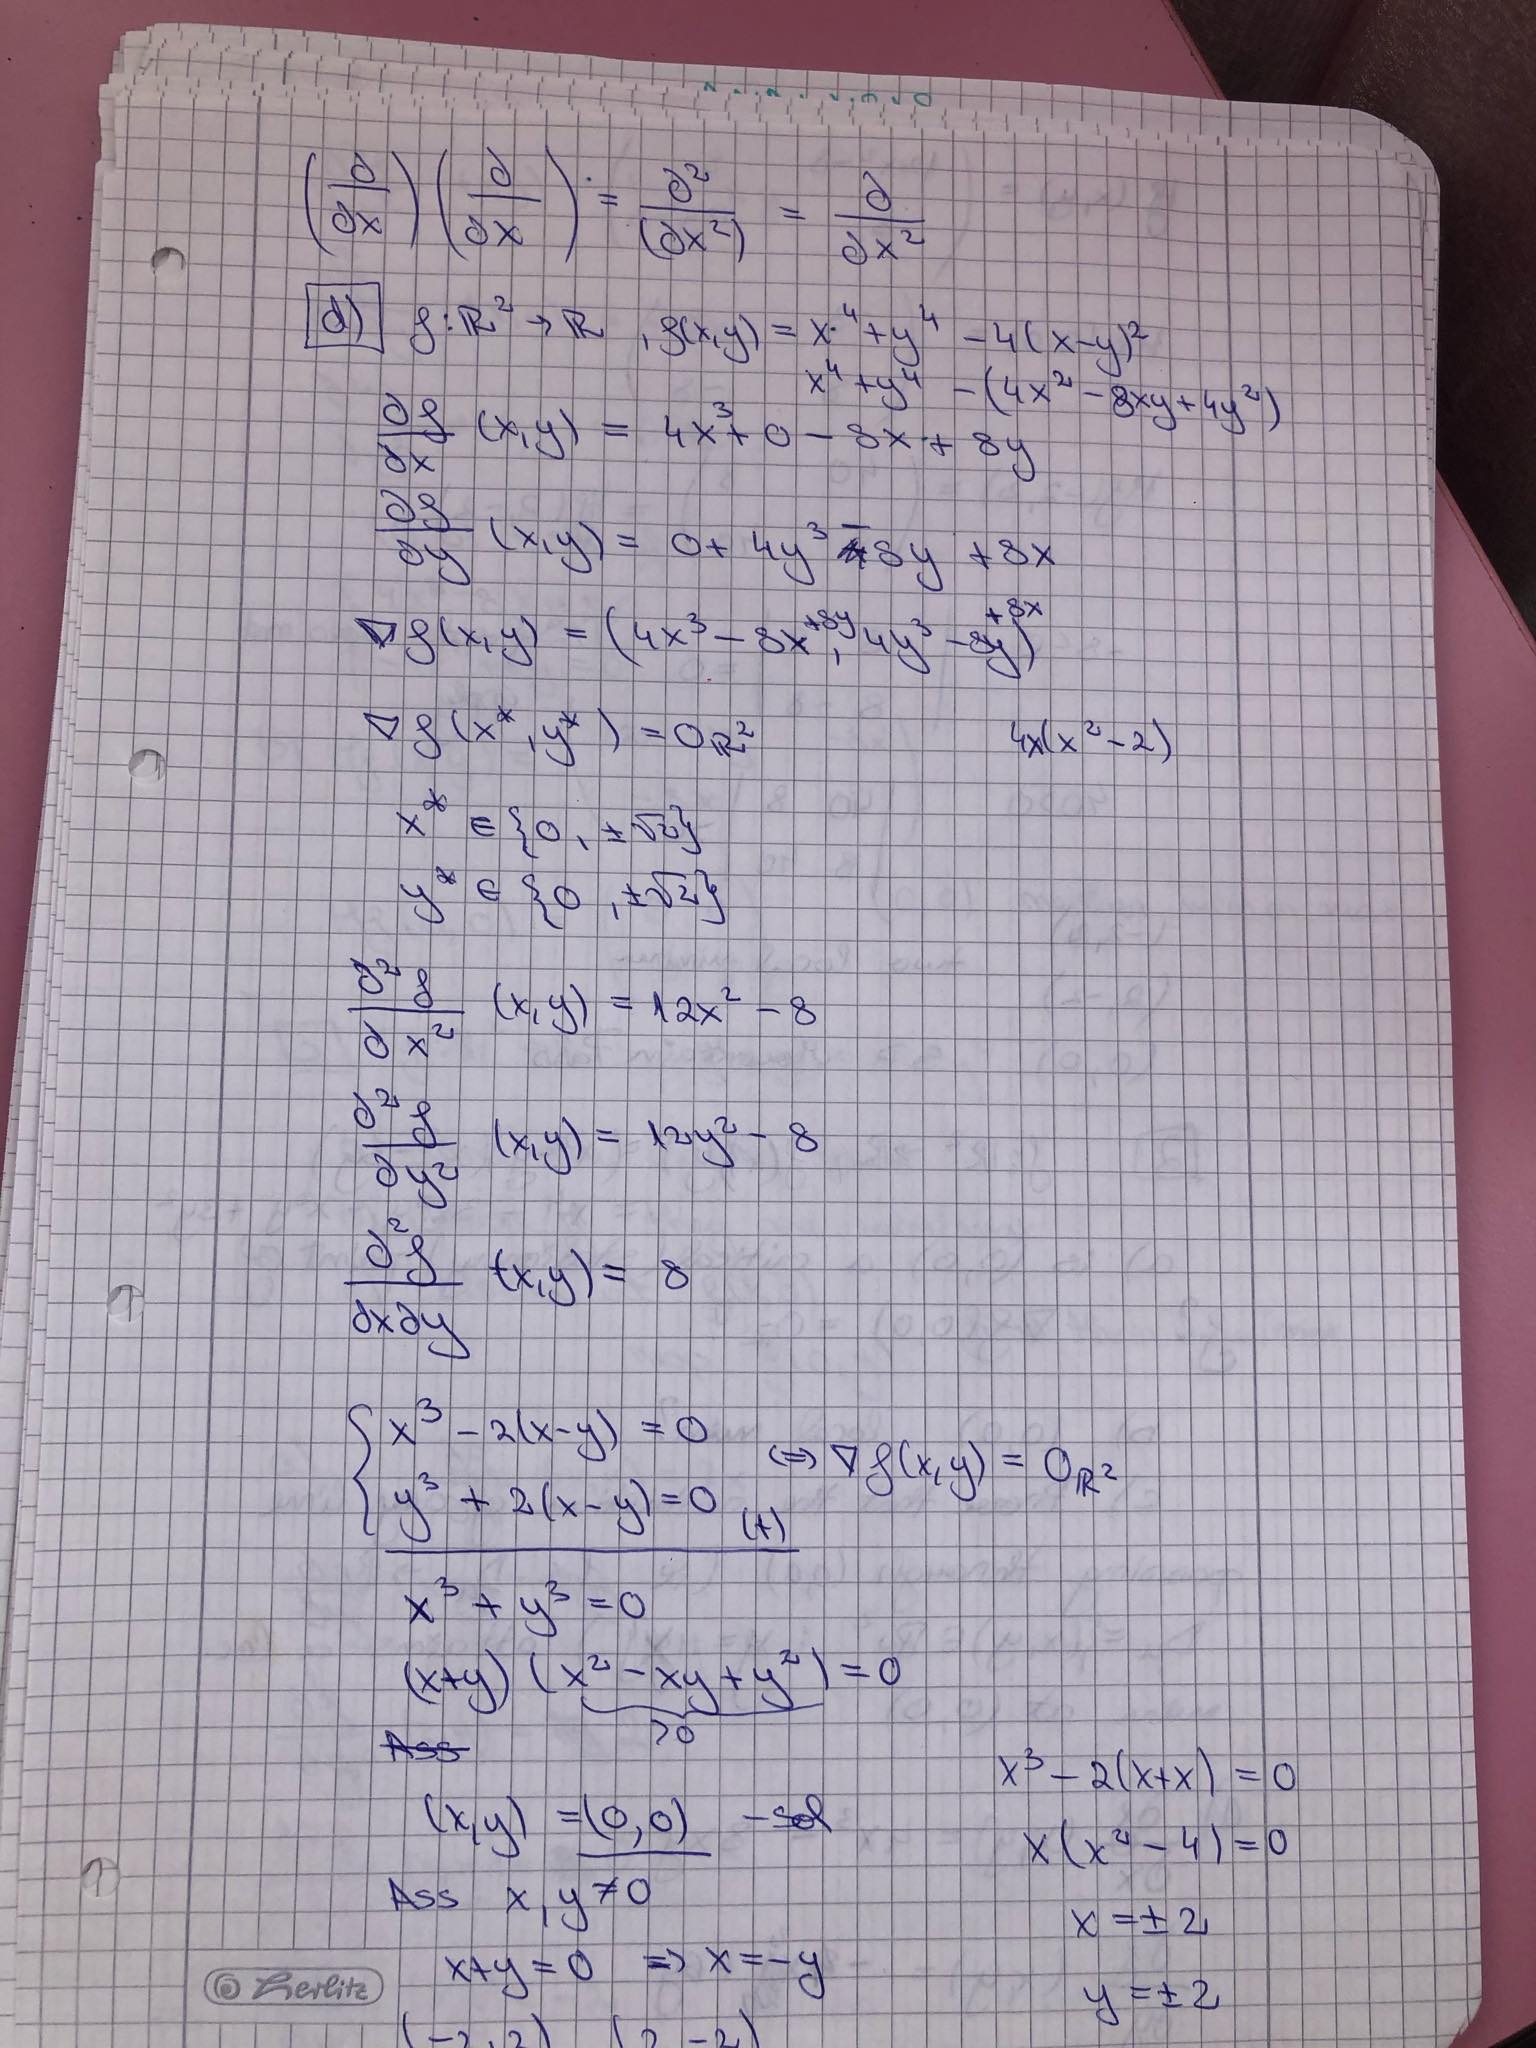 (∂/∂x)(∂/∂x) = ∂²/(∂x²) = ∂/∂x²
d) f: ℝ² → ℝ, f(x,y) = x⁴ + y⁴ - 4(x-y)²
x⁴ + y⁴ - (4x² - 8xy + 4y²)
∂f/∂x (x,y) = 4x³ + 0 - 8x + 8y
∂f/∂y (x,y) = 0 + 4y³ - 8y + 8x
∇f(x,y) = (4x³ - 8x + 8y, 4y³ - 8y + 8x)
∇f(x*, y*) = 0_ℝ² 4x(x² - 2)
x* ∈ {0, ±√2}
y* ∈ {0, ±√2}
∂²f/∂x² (x,y) = 12x² - 8
∂²f/∂y² (x,y) = 12y² - 8
∂²f/∂x∂y (x,y) = 8
{ x³ - 2(x-y) = 0
y³ + 2(x-y) = 0 (+) ⇔ ∇f(x,y) = 0_ℝ²
x³ + y³ = 0
(x+y)(x² - xy + y²) = 0
>0
Ass
(x,y) = (0,0) - sol
Ass x, y ≠ 0
x+y = 0 ⇒ x = -y
(-2, 2) (2, -2)
x³ - 2(x+x) = 0
x(x² - 4) = 0
x = ±2
y = ±2
Herlitz